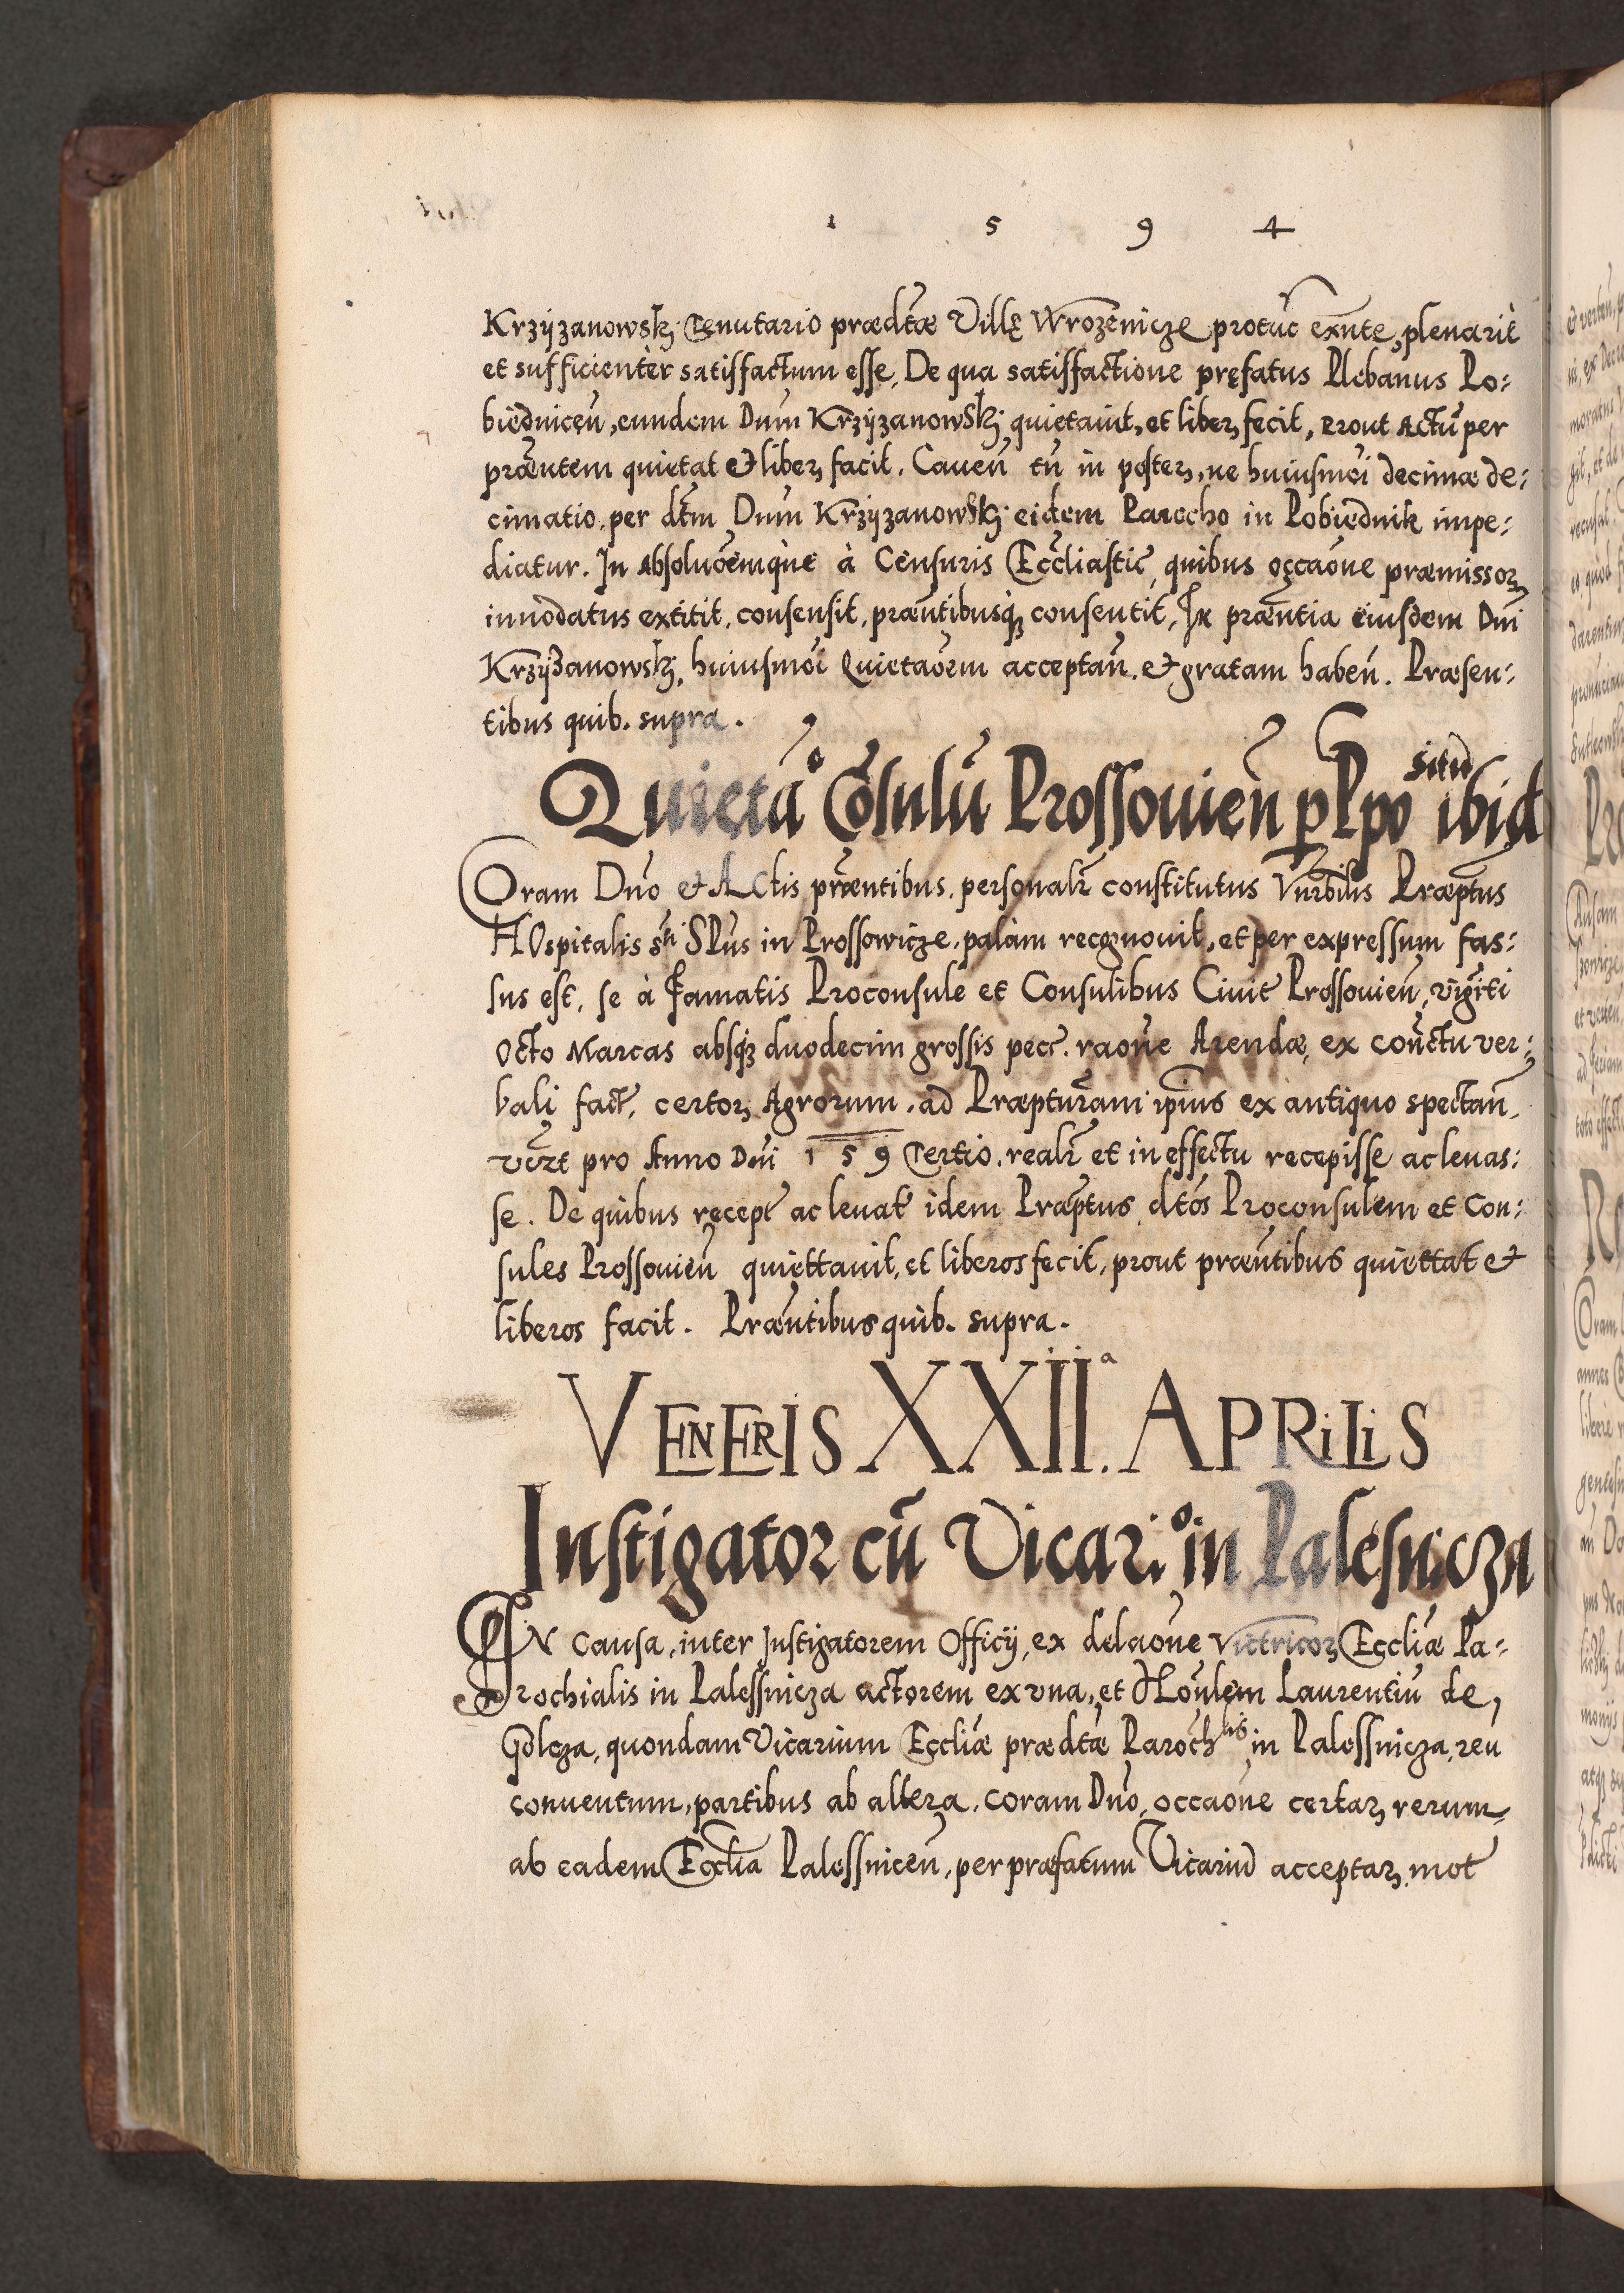 1 5 9 4
Krzÿzanowskj Tenutario prædtæ Villę Wrozenicze protūc exnte, plenariè
et sufficientèr satisfactum esse, De qua satisfactione pręfatus Plebanus Po:
biednicen̄, eundem Dn̄m Krzÿzanowskj quietauit, et liberꝫ fecit, prout Actū per
præntem quietat et liberꝫ facit. Cauen̄ tn̄ in posterꝫ, ne huiusmōi decimæ de:
cimatio, per dt̄m Dn̄m Krzÿzanowskj eidem Parocho in Pobiednik impe:
diatur. In absoluōemquè à Censuris Ecc̄liastic̄, quibus occāōne præmissorꝫ
innodatus extitit, consensit, præn̄tibusqꝫ consentit, In præn̄tia eiusdem Dn̄i
Krzÿzanowskj, huiusmōi Quietāōem acceptan̄. et gratam haben̄. Præsen:
tibus quib. supra.
Quieta͠o Cōsulū Prossouien̄ ꝑ Ppo
situ͠
ibid
Coram Dn̄o et Actis præn̄tibus, personalr̄ constitutus Vn̄rbilis Præpt̄us
Hospitalis s̄ti SP̄us in Prossowicze, palàm recognouit, et per expressum fas:
sus est, se à Famatis Proconsule et Consulibus Ciuit̄ Prossouien̄, vigīti
octo Marcas absqꝫ duodecim grossis pecc̄. raōne Arendæ, ex con̄ctu ver:
bali fact̄, certorꝫ Agrorum, ad Præptūram ip̄ius ex antiquo spectan̄,
vīzt pro Anno Dn̄i 1 5 9 Tertio, realr̄ et in effectu recepisse ac leuas:
se. De quibus recept̄ ac leuat̄ idem Præpt̄us, dt̄os Proconsulem et Con:
sules Prossouien̄ quiettauit, et liberos fecit, prout præn̄tibus quiettat et
liberos facit. Præn̄tibus quib. supra.
VENERIS XXIIª. APRILIS
Instigator cū Vicario in Palesnicza
IN Causa, inter Instigatorem Officÿ, ex delāōne Victricorꝫ Eccl̄iæ Pa:
rochialis in Palessnicza actorem ex vna, et Hon̄lem Laurentiū de,
Golcza, quondam Vicarium Eccl̄iæ prædtæ Paroch lis in Palessnicza, reū
conuentum, partibus ab altera, coram Dn̄o, occāōne certarꝫ rerum
ab eadem Eccl̄ia Palessnicen̄, per præfatum Vicariū acceptarꝫ mot̄